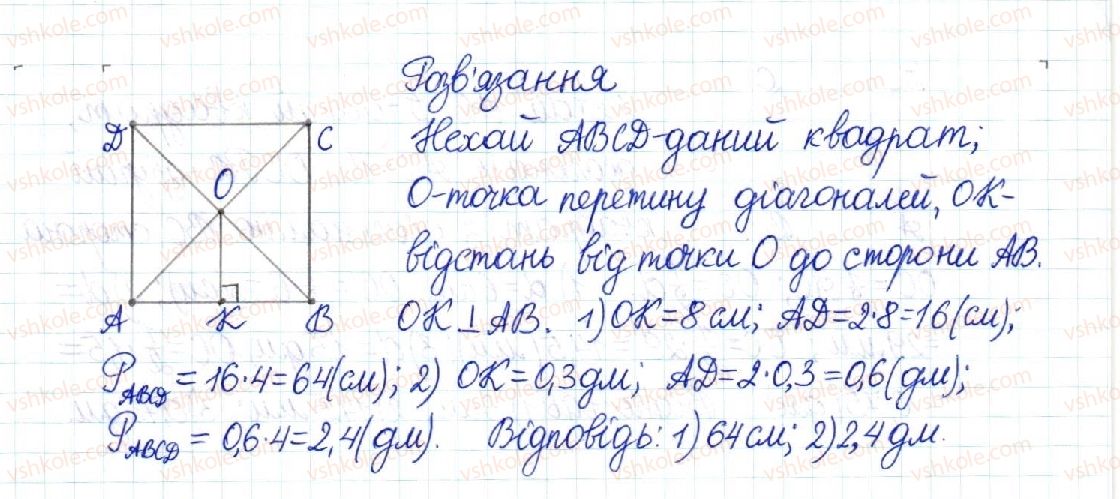 Розв'язання
D C Нехай ABCD-даний квадрат;
O О-точка перетину діагоналей, OK-
відстань від точки О до сторони AB.
A K B OK⊥AB. 1) OK=8 см; AD=2·8=16(см);
P_ABCD = 16·4=64(см); 2) OK=0,3дм; AD=2·0,3=0,6(дм);
P_ABCD = 0,6·4=2,4(дм). Відповідь: 1) 64 см; 2) 2,4 дм.
vshkole.com